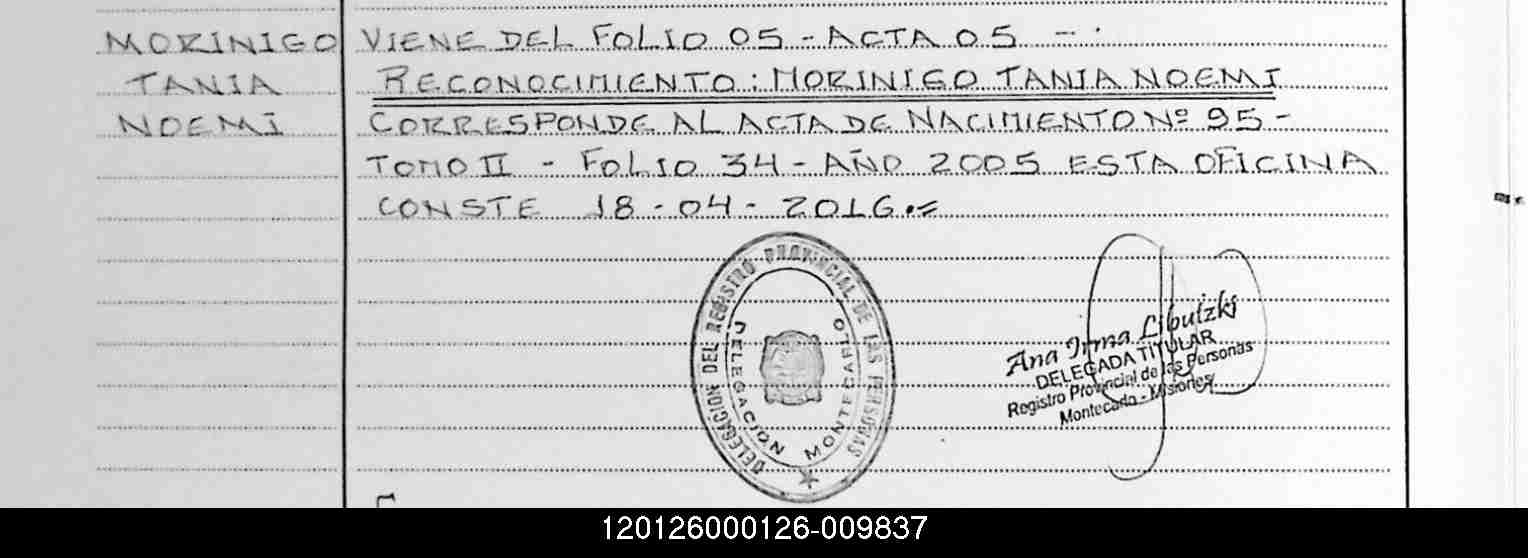 MORINIGO
TANIA
NOEMI
VIENE DEL FOLIO 05 - ACTA 05 - .
RECONOCIMIENTO : MORINIGO TANIA NOEMI
CORRESPONDE AL ACTA DE NACIMIENTO Nº 95 -
TOMO II - FOLIO 34 - AÑO 2005 ESTA OFICINA
CONSTE 18 - 04 - 2016.=
DELEGACIÓN DEL REGISTRO PROVINCIAL DE LAS PERSONAS
DELEGACIÓN MONTECARLO
Ana Irma Libutzki
DELEGADA TITULAR
Registro Provincial de las Personas
Montecarlo - Misiones
120126000126-009837